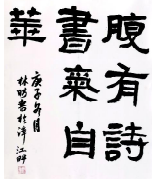 腹有詩
書氣自
華
庚子 月
林 書於 江畔